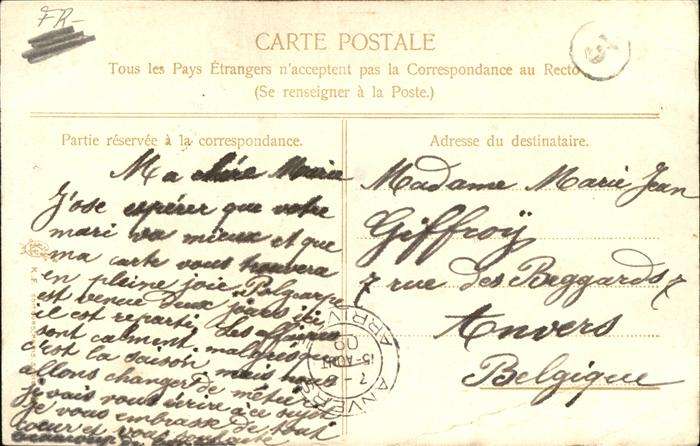 FR-
CARTE POSTALE
Tous les Pays Étrangers n'acceptent pas la Correspondance au Recto
(Se renseigner à la Poste.)
Partie réservée à la correspondance.
Ma chère Marie
J'ose espérer que votre
mari va mieux et que
ma carte vous trouvera
en pleine joie. Polycarpe
est venue deux jours ici
il est reparti, des affaires
sont calment, malgré que
c'est la saison, mais nous
allons changer de métier
je vais vous écrire à ce sujet
je vous embrasse de tout
coeur et
beaucoup de
Adresse du destinataire.
Madame Marie Jean
Giffroÿ
7 rue des Beggards 7
Anvers
Belgique
ANVERS
ARRIV
7-
15 AOUT
09